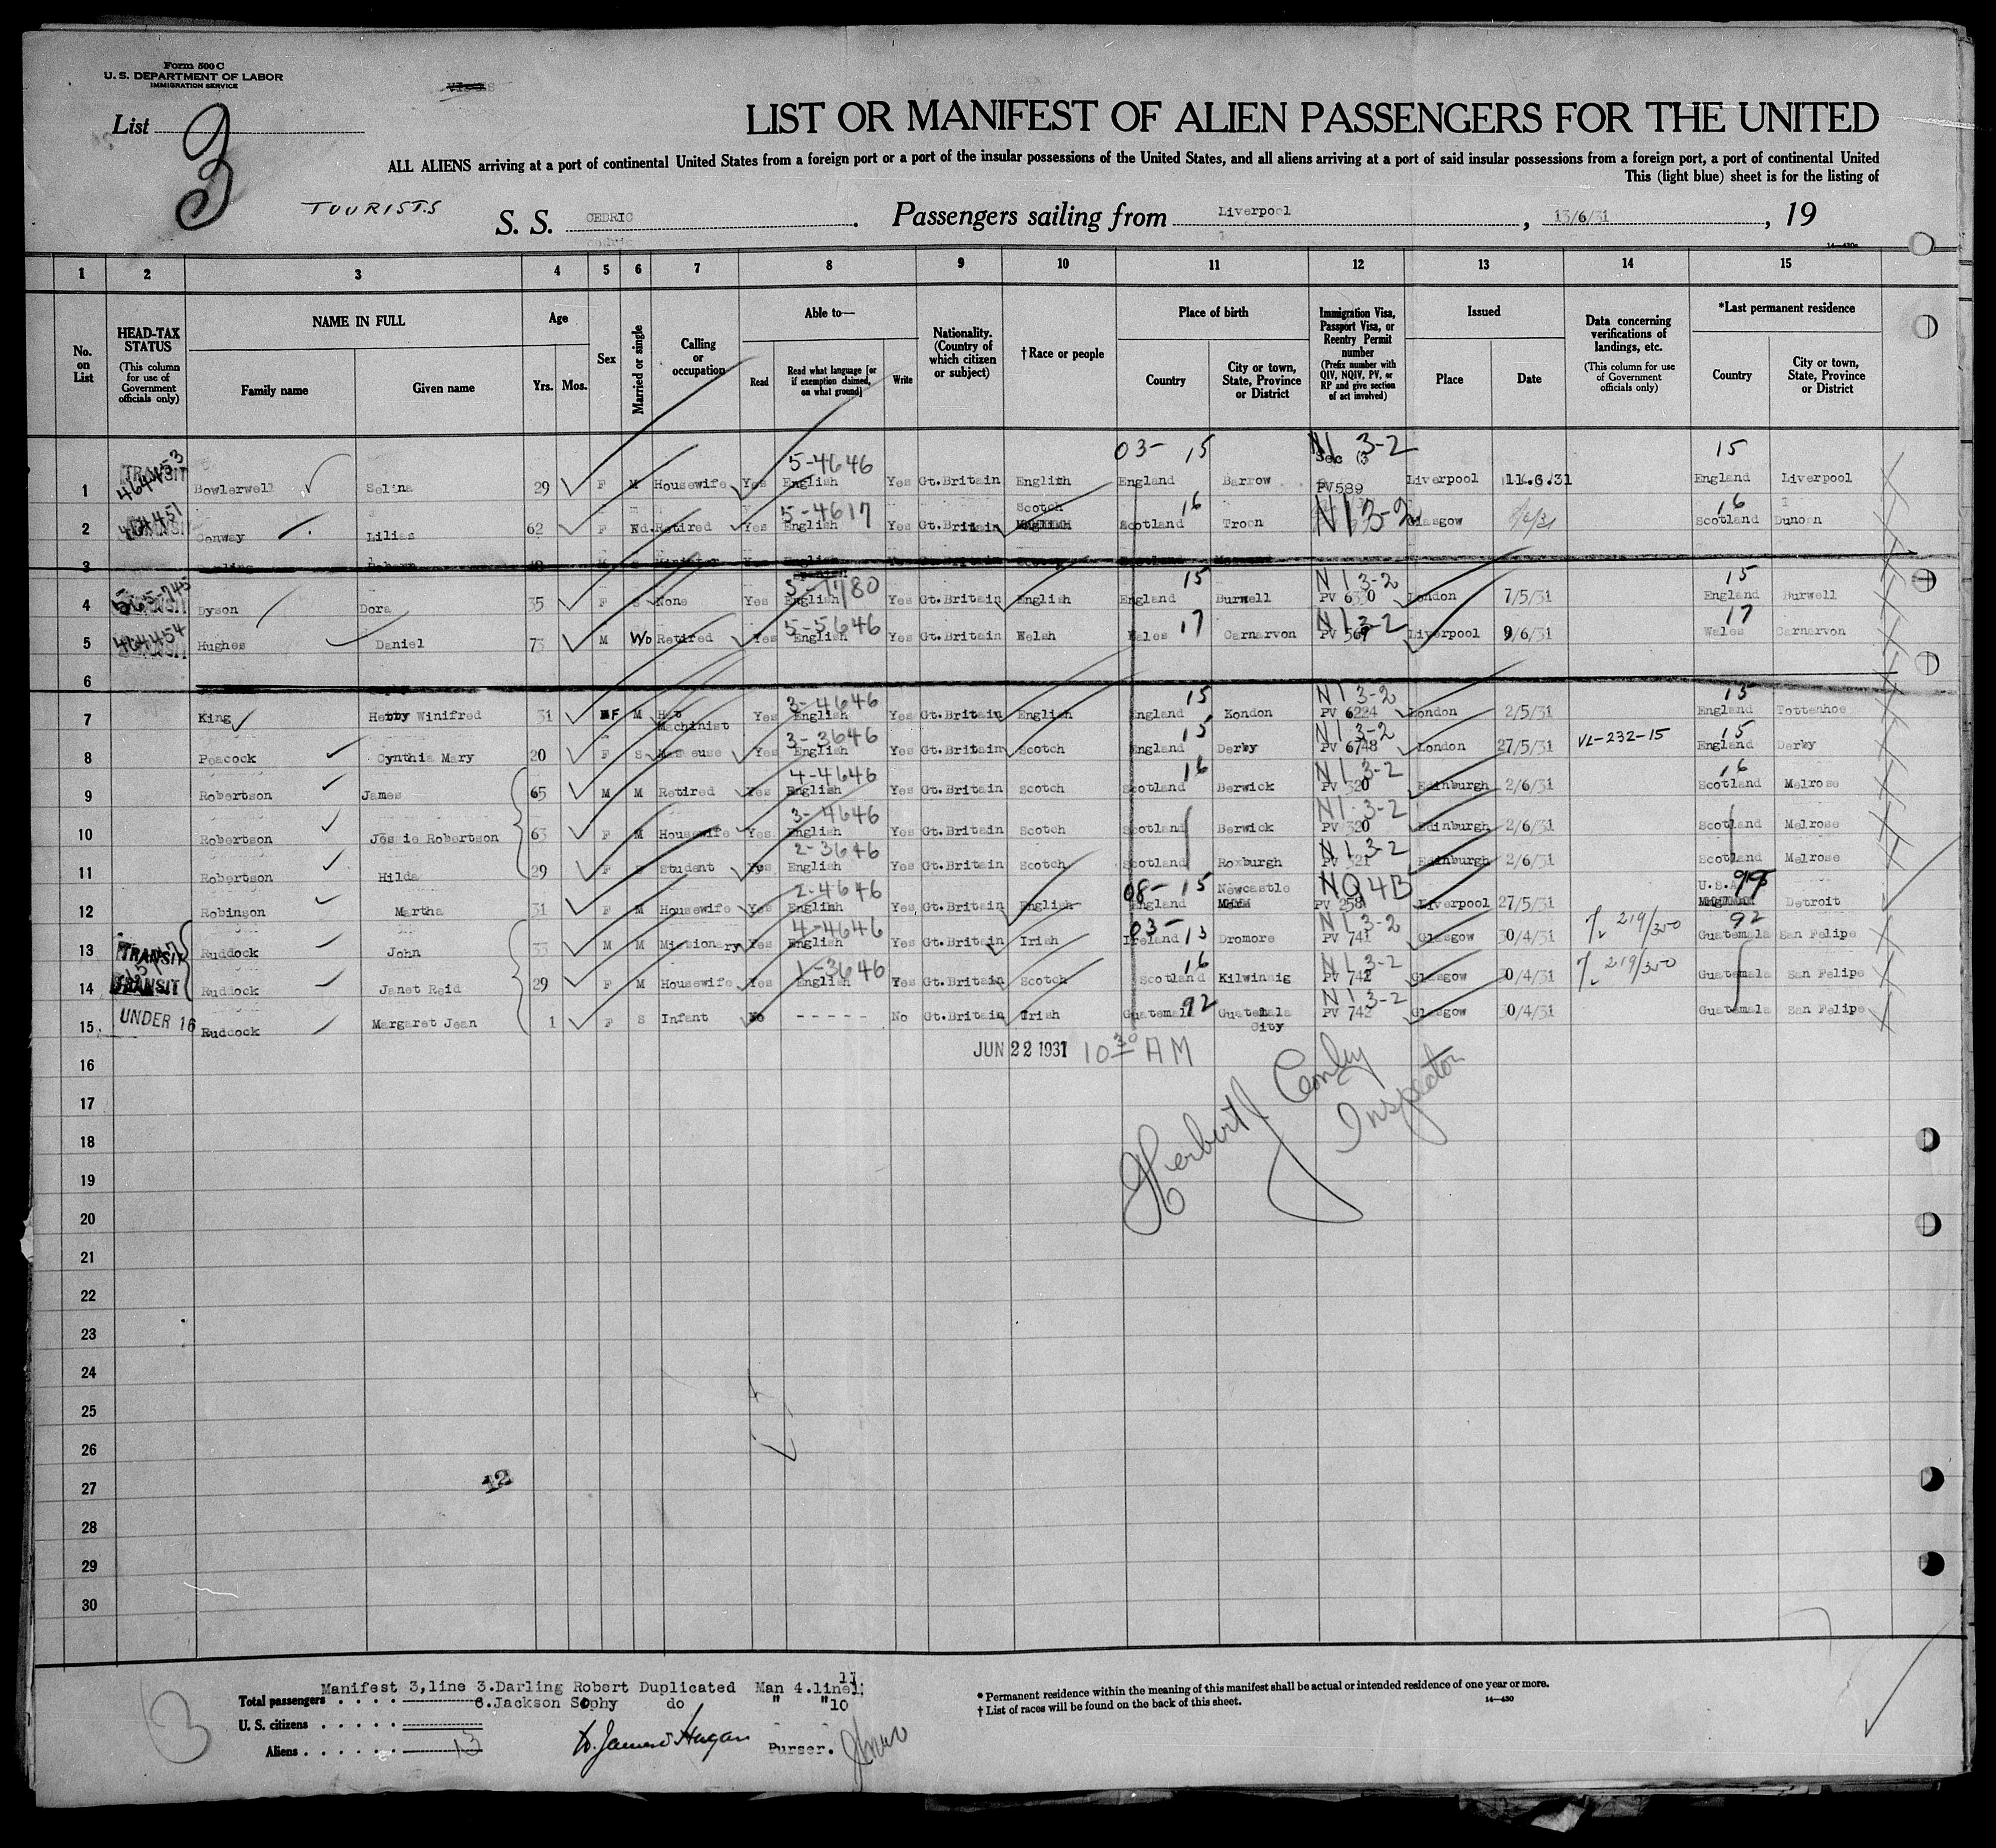 Form 500 C
U. S. DEPARTMENT OF LABOR
IMMIGRATION SERVICE
List 3
LIST OR MANIFEST OF ALIEN PASSENGERS FOR THE UNITED
ALL ALIENS arriving at a port of continental United States from a foreign port or a port of the insular possessions of the United States, and all aliens arriving at a port of said insular possessions from a foreign port, a port of continental United
This (light blue) sheet is for the listing of
TOURISTS
S. S. CEDRIC. Passengers sailing from Liverpool, 13/6/31, 19
14—430a
1 2 3 4 5 6 7 8 9 10 11 12 13 14 15
No. on List
HEAD-TAX STATUS (This column for use of Government officials only)
NAME IN FULL
Family name Given name
Age Yrs. Mos.
Sex
Married or single
Calling or occupation
Able to—
Read Read what language [or if exemption claimed, on what ground] Write
Nationality. (Country of which citizen or subject)
†Race or people
Place of birth
Country City or town, State, Province or District
Immigration Visa, Passport Visa, or Reentry Permit number (Prefix number with QIV, NQIV, PV, or RP and give section of act involved)
Issued
Place Date
Data concerning verifications of landings, etc. (This column for use of Government officials only)
*Last permanent residence
Country City or town, State, Province or District
03- 15 N1 3-2 15
TRANSIT 5-4646 Sec (3
1 Bowlerwell Selina 29 F M Housewife Yes English Yes Gt.Britain English England Barrow PV589 Liverpool 11.6.31 England Liverpool
5-4617 Scotch 16 N1 3-2 16
2 Conway Lilias 62 F Wd. Retired Yes English Yes Gt.Britain English Scotland Troon Glasgow Scotland Dunoon
3
15 N1 3-2 15
4 Dyson Dora 35 F S None Yes English Yes Gt.Britain English England Burwell PV 6330 London 7/5/31 England Burwell
464454 5-5646 17 N1 3-2 17
5 Hughes Daniel 73 M Wd Retired Yes English Yes Gt.Britain Welsh Wales Carnarvon PV 569 Liverpool 9/6/31 Wales Carnarvon
6
3-4646 15 N1 3-2 15
7 King Hetty Winifred 31 F M Hat Machinist Yes English Yes Gt.Britain English England Kondon PV 6224 London 2/5/31 England Tottenhoe
3-3646 15 N1 3-2 15
8 Peacock Cynthia Mary 20 F S Masseuse Yes English Yes Gt.Britain Scotch England Derby PV 6748 London 27/5/31 VL-232-15 England Derby
4-4646 16 N1 3-2 16
9 Robertson James 65 M M Retired Yes English Yes Gt.Britain Scotch Scotland Berwick PV 320 Edinburgh 2/6/31 Scotland Melrose
3-4646 N1 3-2
10 Robertson Jessie Robertson 63 F M Housewife Yes English Yes Gt.Britain Scotch Scotland Berwick PV 320 Edinburgh 2/6/31 Scotland Melrose
2-3646 N1 3-2
11 Robertson Hilda 29 F S Student Yes English Yes Gt.Britain Scotch Scotland Roxburgh PV 321 Edinburgh 2/6/31 Scotland Melrose
2-4646 08- 15 Newcastle NQ4B U.S.A. 99
12 Robinson Martha 31 F M Housewife Yes English Yes Gt.Britain English England PV 258 Liverpool 27/5/31 England Detroit
4-4646 03- 13 N1 3-2 92
13 TRANSIT Ruddock John 33 M M Missionary Yes English Yes Gt.Britain Irish Ireland Dromore PV 741 Glasgow 30/4/31 219/350 Guatemala San Felipe
1-3646 16 N1 3-2
14 TRANSIT Ruddock Janet Reid 29 F M Housewife Yes English Yes Gt.Britain Scotch Scotland Kilwinnig PV 742 Glasgow 30/4/31 219/350 Guatemala San Felipe
92 N1 3-2
15 UNDER 16 Ruddock Margaret Jean 1 F S Infant No - - - - - No Gt.Britain Irish Guatemala Guatemala City PV 742 Glasgow 30/4/31 Guatemala San Felipe
16 JUN 22 1931 10 30 AM
Herbert J Conley
Inspector
17
18
19
20
21
22
23
24
25
26
27
12
28
29
30
Manifest 3,line 3.Darling Robert Duplicated Man 4.line 11
Total passengers . . . . 6.Jackson Sophy do " "10
U. S. citizens . . . . .
Aliens . . . . . . 13
Purser.
3
* Permanent residence within the meaning of this manifest shall be actual or intended residence of one year or more.
† List of races will be found on the back of this sheet.
14—430